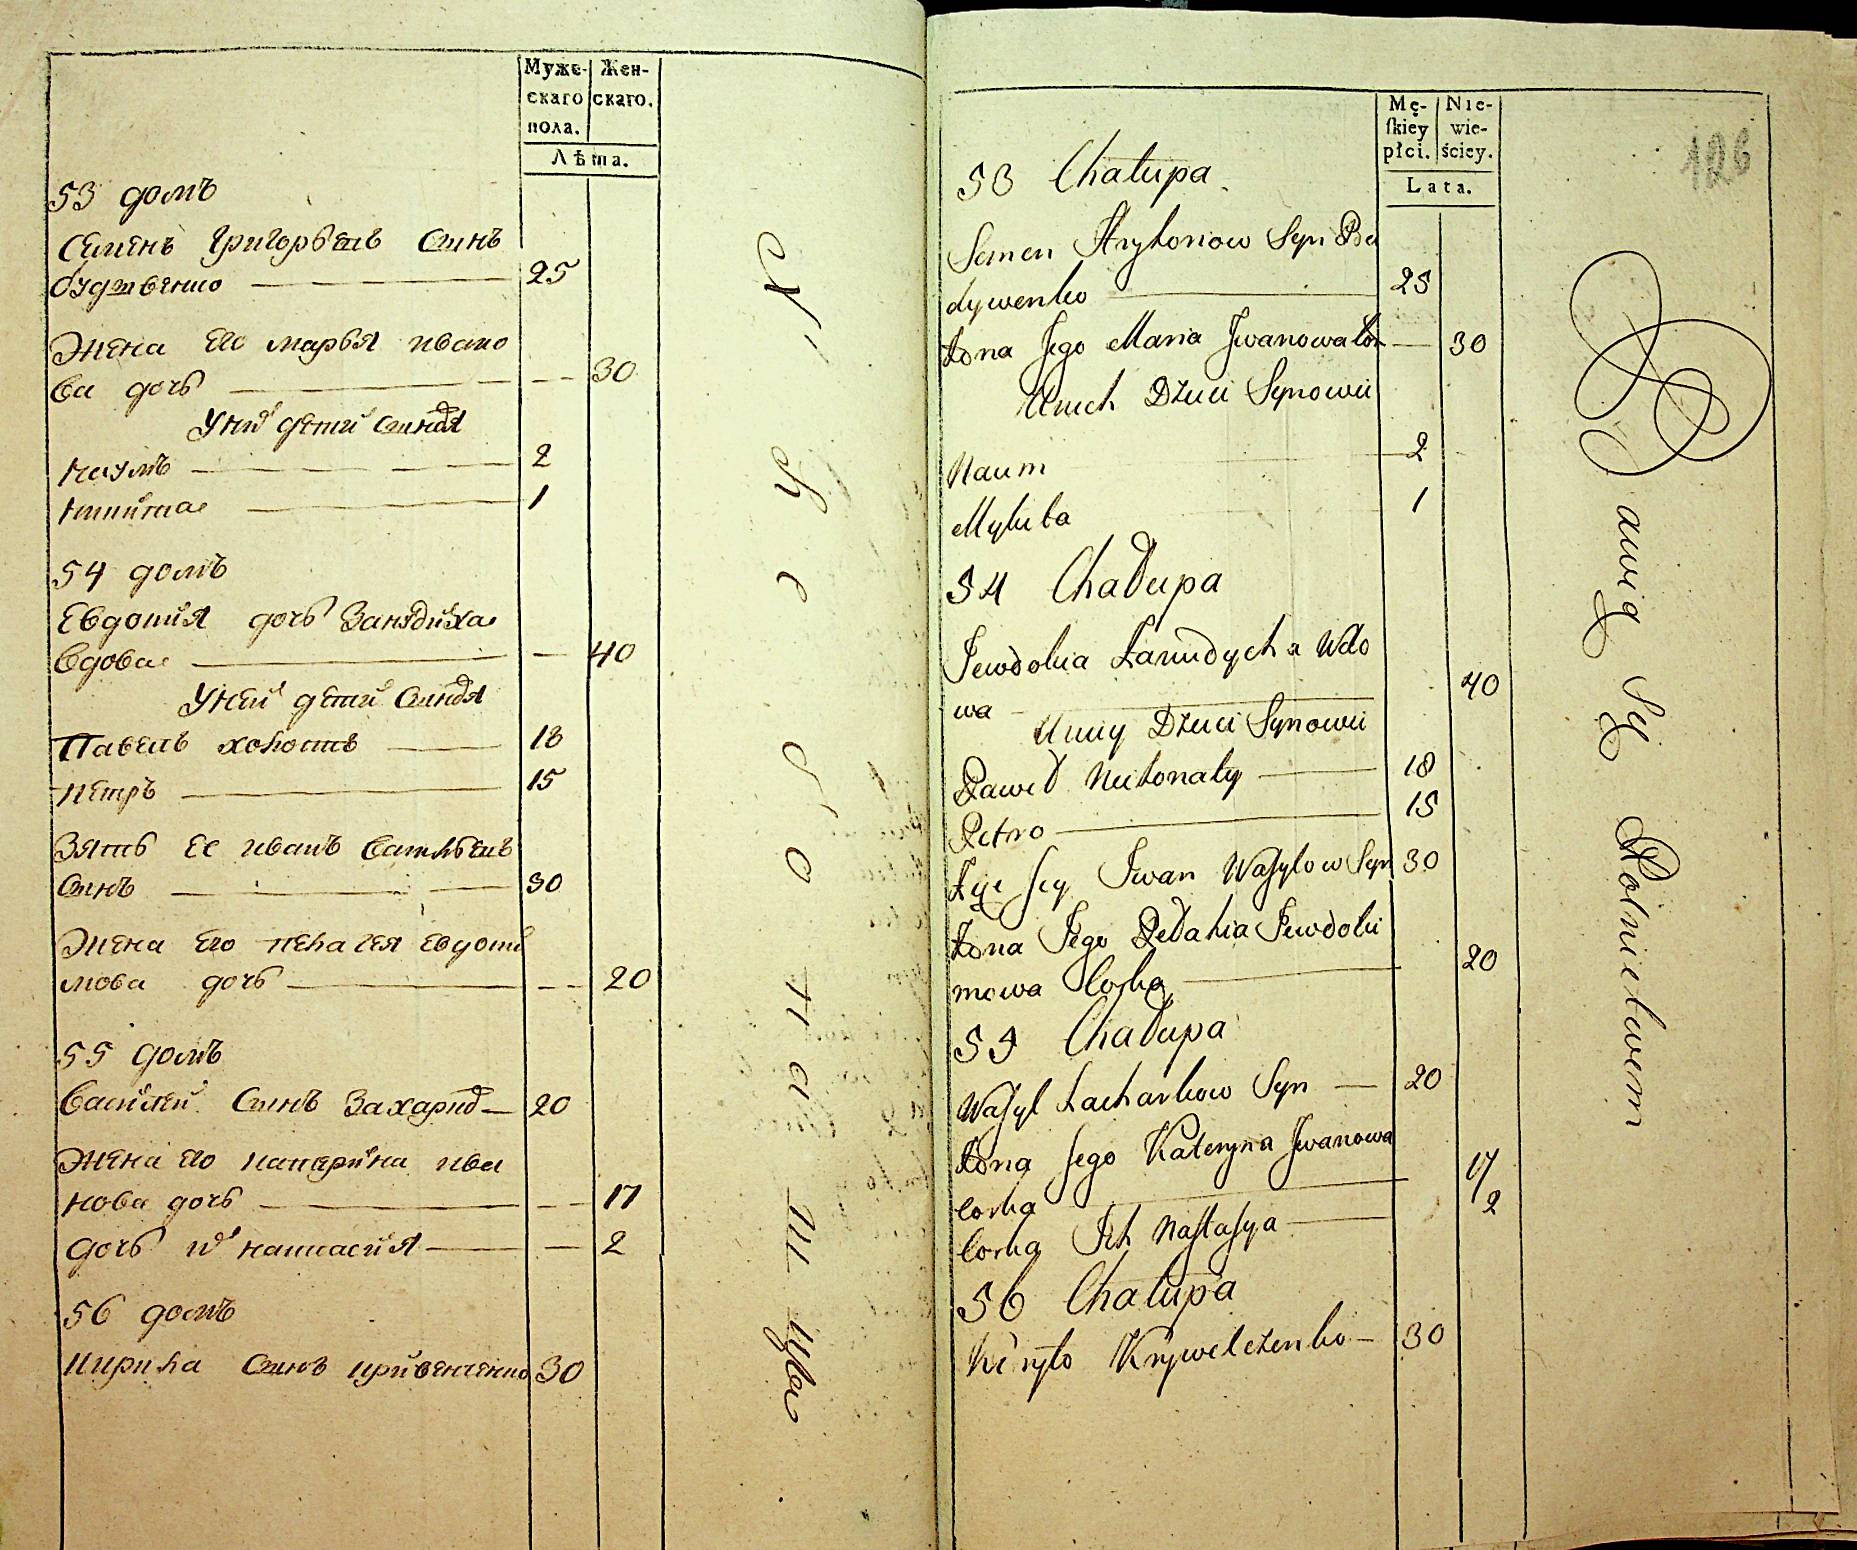 Муже-
скаго
пола.
Жен-
скаго.
Лѣта.
53 домъ
Семенъ Григорьевъ синъ
будтвенко 25
Жена его марья ивано
ва дочь 30
У них дети синовя
наумъ 2
микита 1
54 домъ
Евдокия дочь Занудиха
вдова 40
У ней дети синовя
Павелъ холостъ 18
петръ 15
Зять ее иванъ васильевъ
синъ 30
Жена его пелагея Евдоки
мова дочь 20
55 домъ
василий синъ Захарив 20
Жена его катерина ива
нова дочь 17
дочь их настасия 2
56 домъ
кирила синъ кривенченко 30
Mę-
skiey
płci.
Nie-
wie-
ściey.
Lata.
126
53 Chałupa
Semen Hrytoriow Syn Bu
dywenko 25
Żona Jego Maria Iwanowa Cor 30
U nich Dzieci Synowie
Naum 2
Mykita 1
54 Chałupa
Jewdokia Zanudycha Wdo
wa 40
U niey Dzieci Synowie
Paweł Nieżonaty 18
Petro 15
Zięć Jey Iwan Wasylow Syn 30
Żona Jego Pełahia Jewdoki
mowa Corka 20
55 Chałupa
Wasyl Zacharkow Syn 20
Żona Jego Kateryna Iwanowa
Corka 17
Corka Ich Nastasya 2
56 Chałupa
Kiryło Krywelczenko 30
Bawią Się Rolnictwem